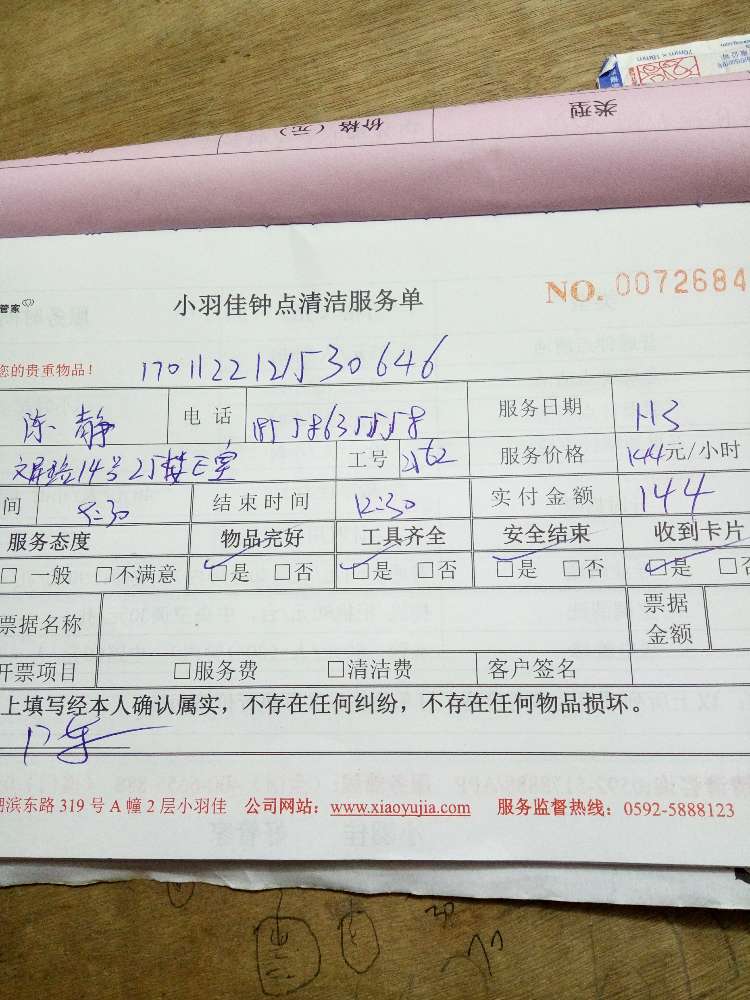 类型
价格（元）
管家
小羽佳钟点清洁服务单
NO. 0072684
您的贵重物品！
1701122121530646
陈静 电话 服务日期
文屏路14号25楼E室 工号 2162 服务价格 144元/小时
间 8:30 结束时间 12:30 实付金额 144
服务态度 物品完好 工具齐全 安全结束 收到卡片
□ 一般 □不满意 □是 □否 □是 □否 □是 □否 □是 □否
票据名称 票据金额
开票项目 □服务费 □清洁费 客户签名
上填写经本人确认属实，不存在任何纠纷，不存在任何物品损坏。
湖滨东路 319 号 A 幢 2 层小羽佳 公司网站：www.xiaoyujia.com 服务监督热线：0592-5888123